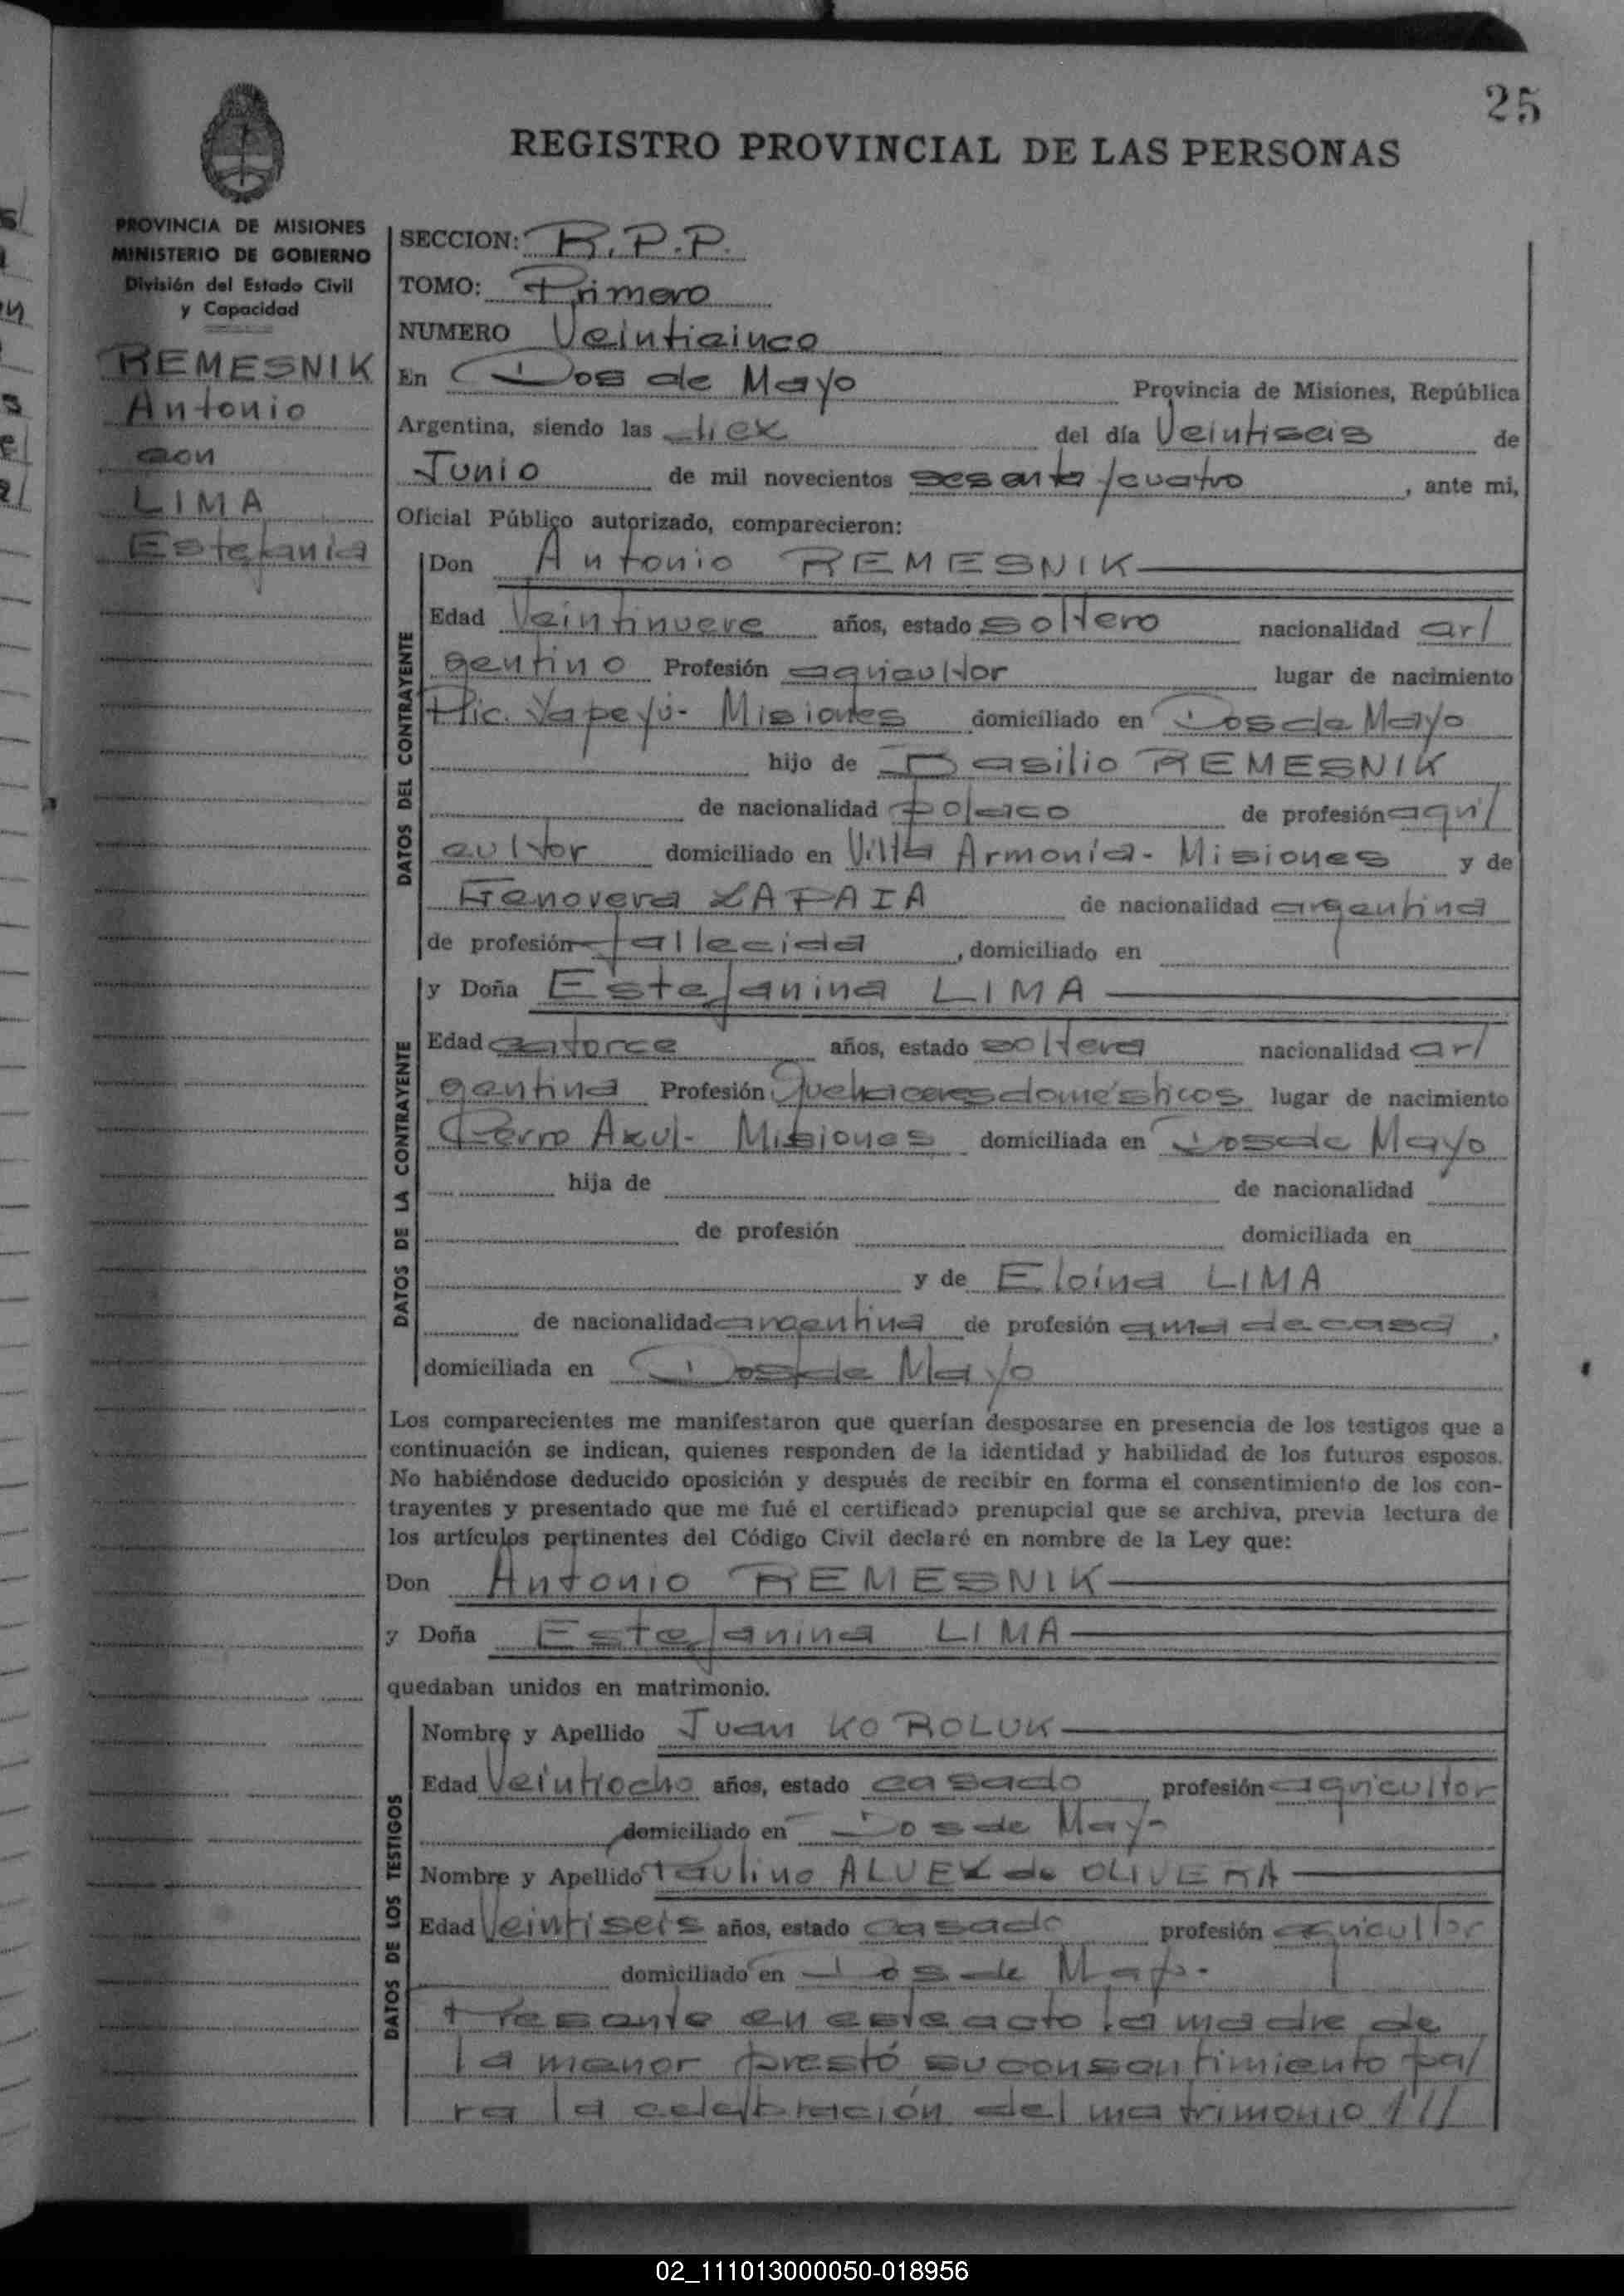 25
REGISTRO PROVINCIAL DE LAS PERSONAS
PROVINCIA DE MISIONES
MINISTERIO DE GOBIERNO
División del Estado Civil
y Capacidad
REMESNIK
Antonio
con
LIMA
Estefania
SECCION: R.P.P.
TOMO: Primero
NUMERO Veinticinco
En Dos de Mayo Provincia de Misiones, República
Argentina, siendo las diez del día Veintiseis de
Junio de mil novecientos sesanta/cuatro, ante mi,
Oficial Público autorizado, comparecieron:
DATOS DEL CONTRAYENTE
Don Antonio REMESNIK
Edad Veintinueve años, estado soltero nacionalidad ar/
gentino Profesión agricultor lugar de nacimiento
Pic. Yapeyú- Misiones domiciliado en Dos de Mayo
hijo de Basilio REMESNIK
de nacionalidad polaco de profesión agri/
cultor domiciliado en Villa Armonía- Misiones y de
Genoveva ZAPAIA de nacionalidad argentina
de profesión fallecida, domiciliado en
DATOS DE LA CONTRAYENTE
y Doña Estefanina LIMA
Edad catorce años, estado soltera nacionalidad ar/
gentina Profesión Quehaceres domésticos lugar de nacimiento
Cerro Azul- Misiones domiciliada en Dos de Mayo
hija de de nacionalidad
de profesión domiciliada en
y de Eloina LIMA
de nacionalidad argentina de profesión ama de casa,
domiciliada en Dos de Mayo
Los comparecientes me manifestaron que querían desposarse en presencia de los testigos que a
continuación se indican, quienes responden de la identidad y habilidad de los futuros esposos.
No habiéndose deducido oposición y después de recibir en forma el consentimiento de los con-
trayentes y presentado que me fué el certificado prenupcial que se archiva, previa lectura de
los artículos pertinentes del Código Civil declaré en nombre de la Ley que:
Don Antonio REMESNIK
y Doña Estefanina LIMA
quedaban unidos en matrimonio.
DATOS DE LOS TESTIGOS
Nombre y Apellido Juan KOROLUK
Edad Veintiocho años, estado casado profesión agricultor
domiciliado en Dos de Mayo
Nombre y Apellido Paulino ALVEZ de OLIVERA
Edad Veintiseis años, estado casado profesión agricultor
domiciliado en Dos de Mayo-
Presente en este acto la madre de
la menor prestó su consentimiento pa/
ra la celebración del matrimonio ///
02_111013000050-018956